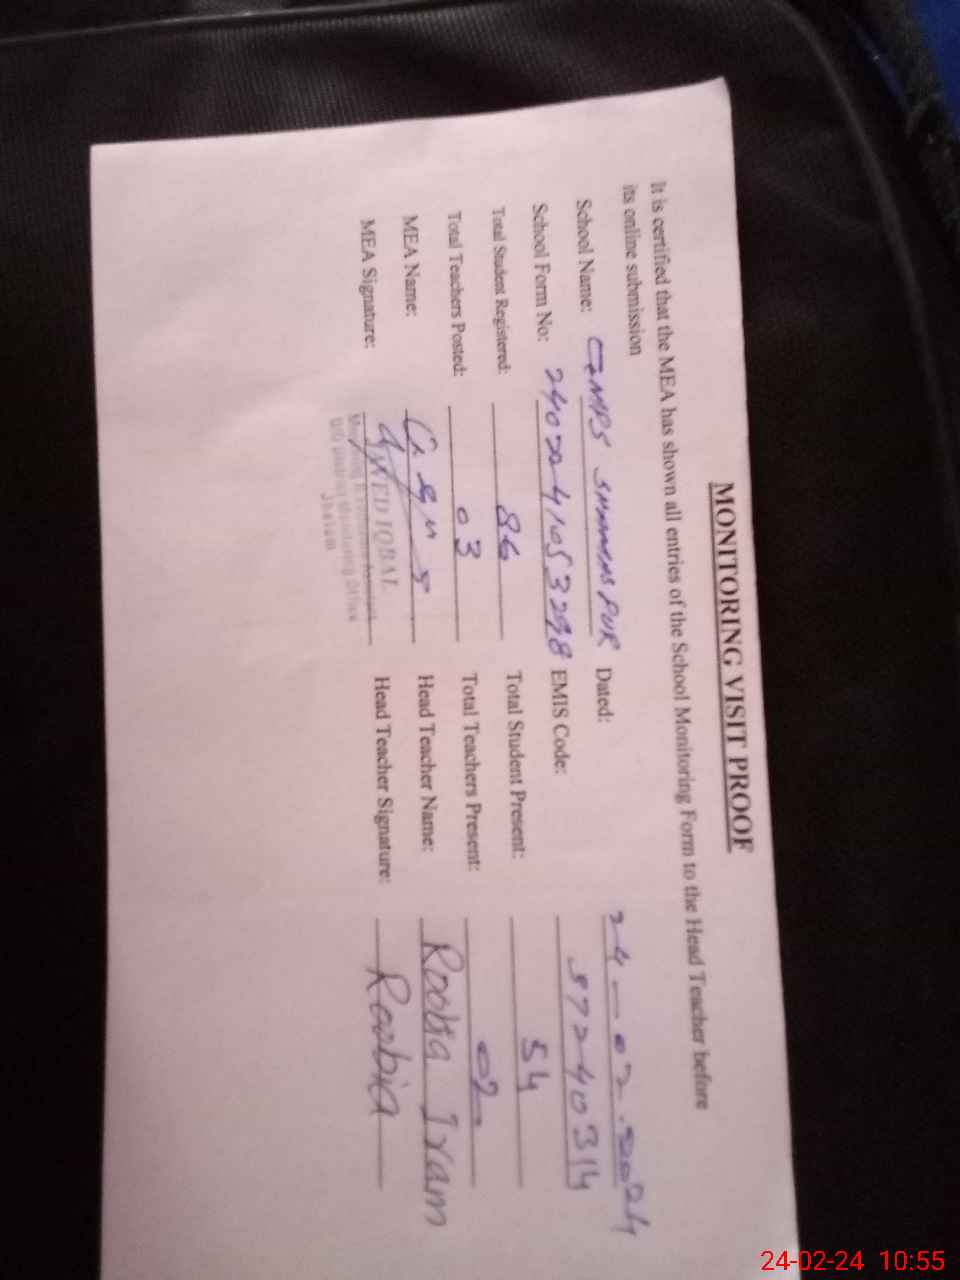 MONITORING VISIT PROOF
It is certified that the MEA has shown all entries of the School Monitoring Form to the Head Teacher before
its online submission
School Name: GMPS PUR Dated: 24-02-2024
School Form No: EMIS Code: 37240314
Total Student Registered: 86 Total Student Present: 54
Total Teachers Posted: 03 Total Teachers Present: 02
MEA Name: Head Teacher Name: Roobia Iram
MEA Signature: Head Teacher Signature: Roobia
IQBAL
Monitoring & Evaluation Assistant
O/O District Monitoring Officer
Jhelum
24-02-24 10:55